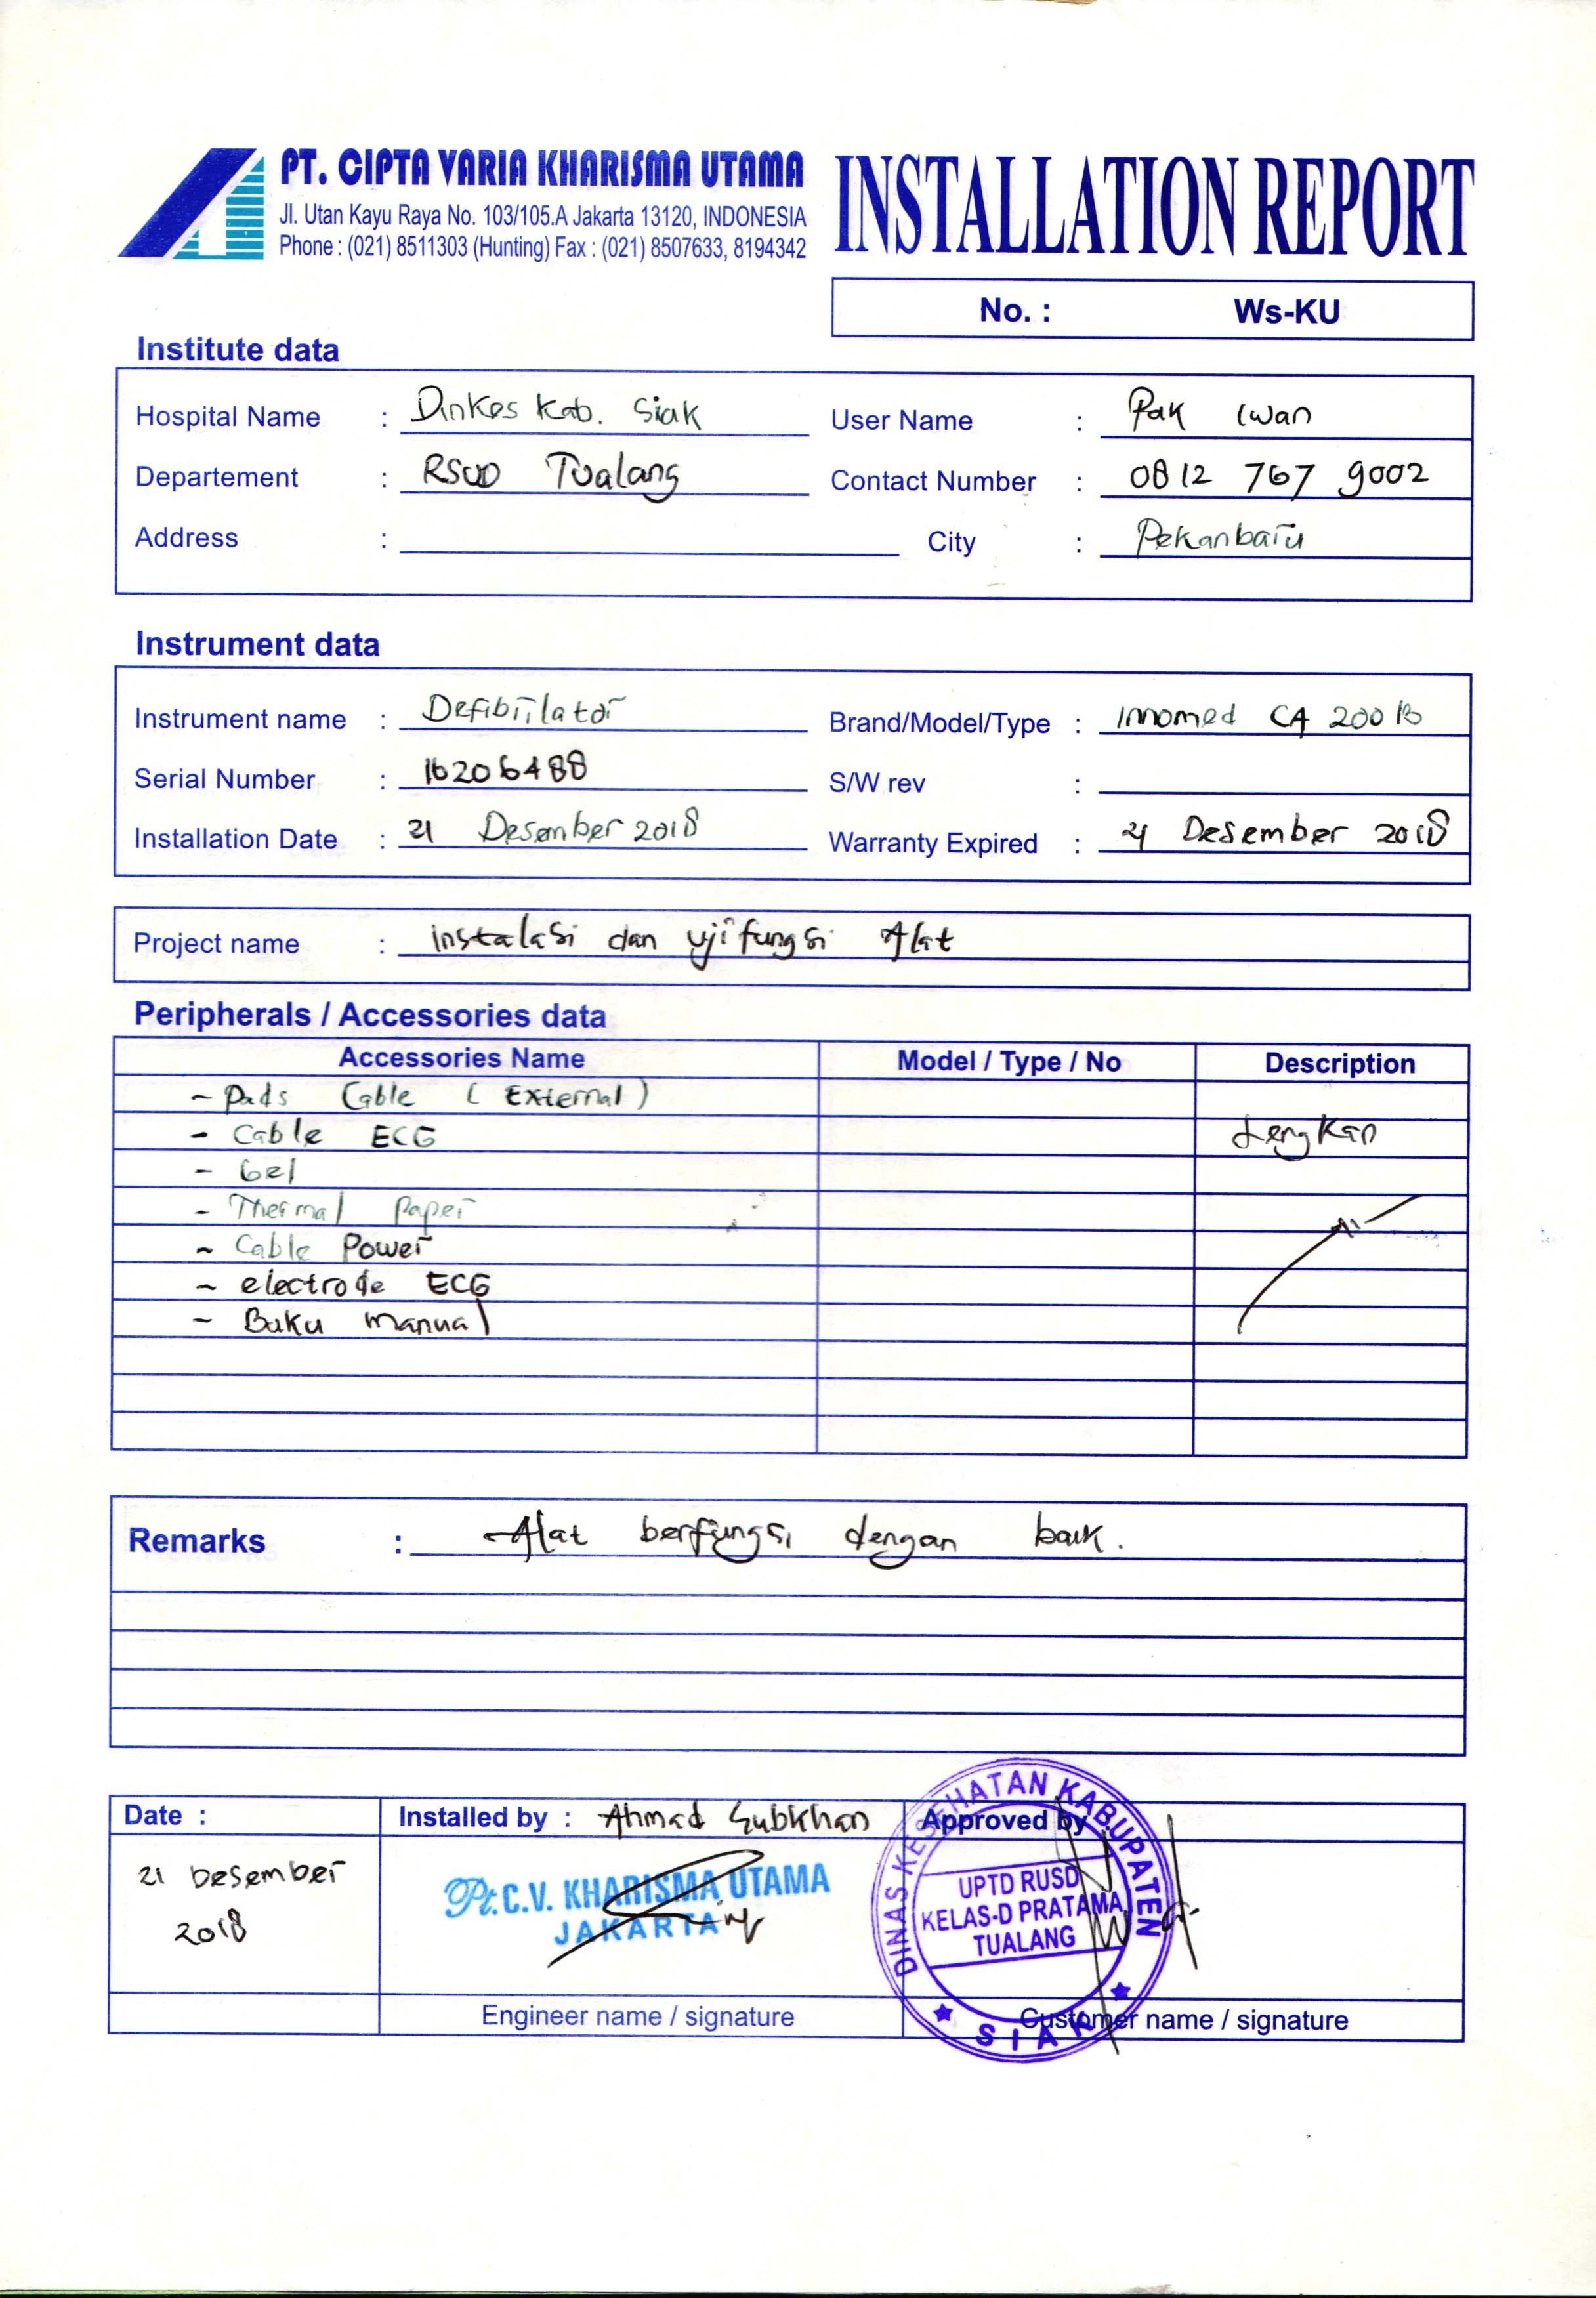 PT. CIPTA VARIA KHARISMA UTAMA
Jl. Utan Kayu Raya No. 103/105.A Jakarta 13120, INDONESIA
Phone : (021) 8511303 (Hunting) Fax : (021) 8507633, 8194342
INSTALLATION REPORT
No. : Ws-KU
Institute data
Hospital Name : Dinkes Kab. Siak User Name : Pak Iwan
Departement : RSUD Tualang Contact Number : 0812 767 9002
Address : City : Pekanbaru
Instrument data
Instrument name : Defibrilator Brand/Model/Type : Innomed CA 200 B
Serial Number : 16206488 S/W rev :
Installation Date : 21 Desember 2018 Warranty Expired : 21 Desember 2018
Project name : instalasi dan uji fungsi Alat
Peripherals / Accessories data
Accessories Name Model / Type / No Description
- Pads Cable ( External )
- Cable ECG Lengkap
- Gel
- Thermal Paper
- Cable Power
- electrode ECG
- Buku manual
Remarks : Alat berfungsi dengan baik.
Date : Installed by : Ahmad Subkhan Approved by :
21 Desember
2018
Pt. C.V. KHARISMA UTAMA
JAKARTA
DINAS KESEHATAN KABUPATEN
UPTD RUSD
KELAS-D PRATAMA
TUALANG
SIAK
Engineer name / signature Customer name / signature